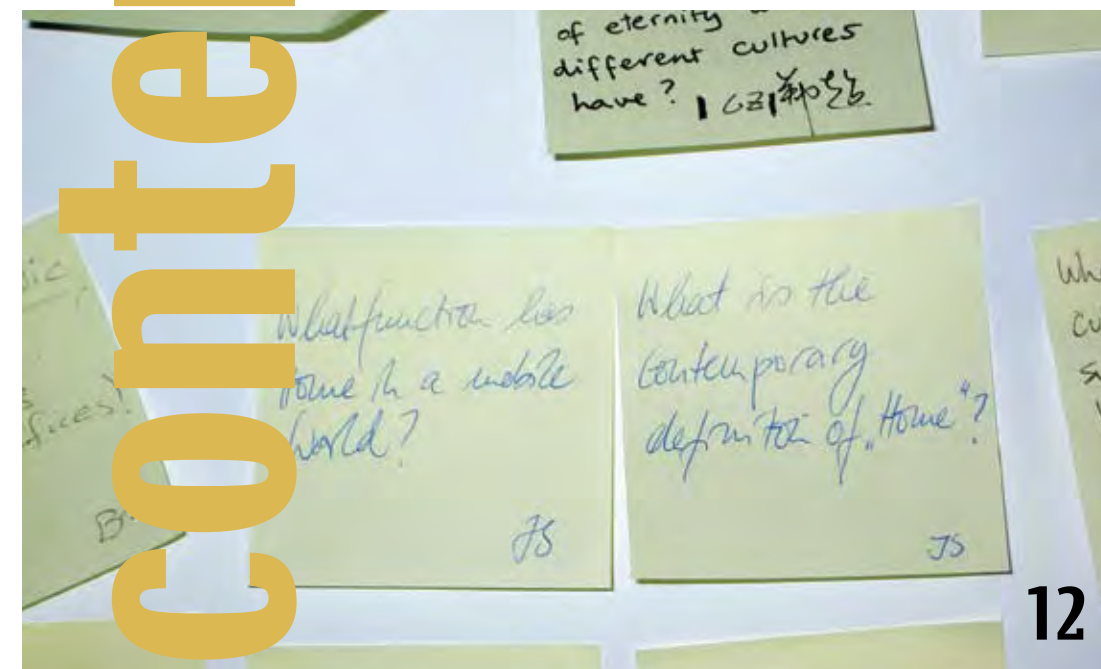 conte
of eternity
different cultures
have?
What function has
Home in a mobile
World?
JS
What is the
contemporary
definition of „Home“?
JS
12